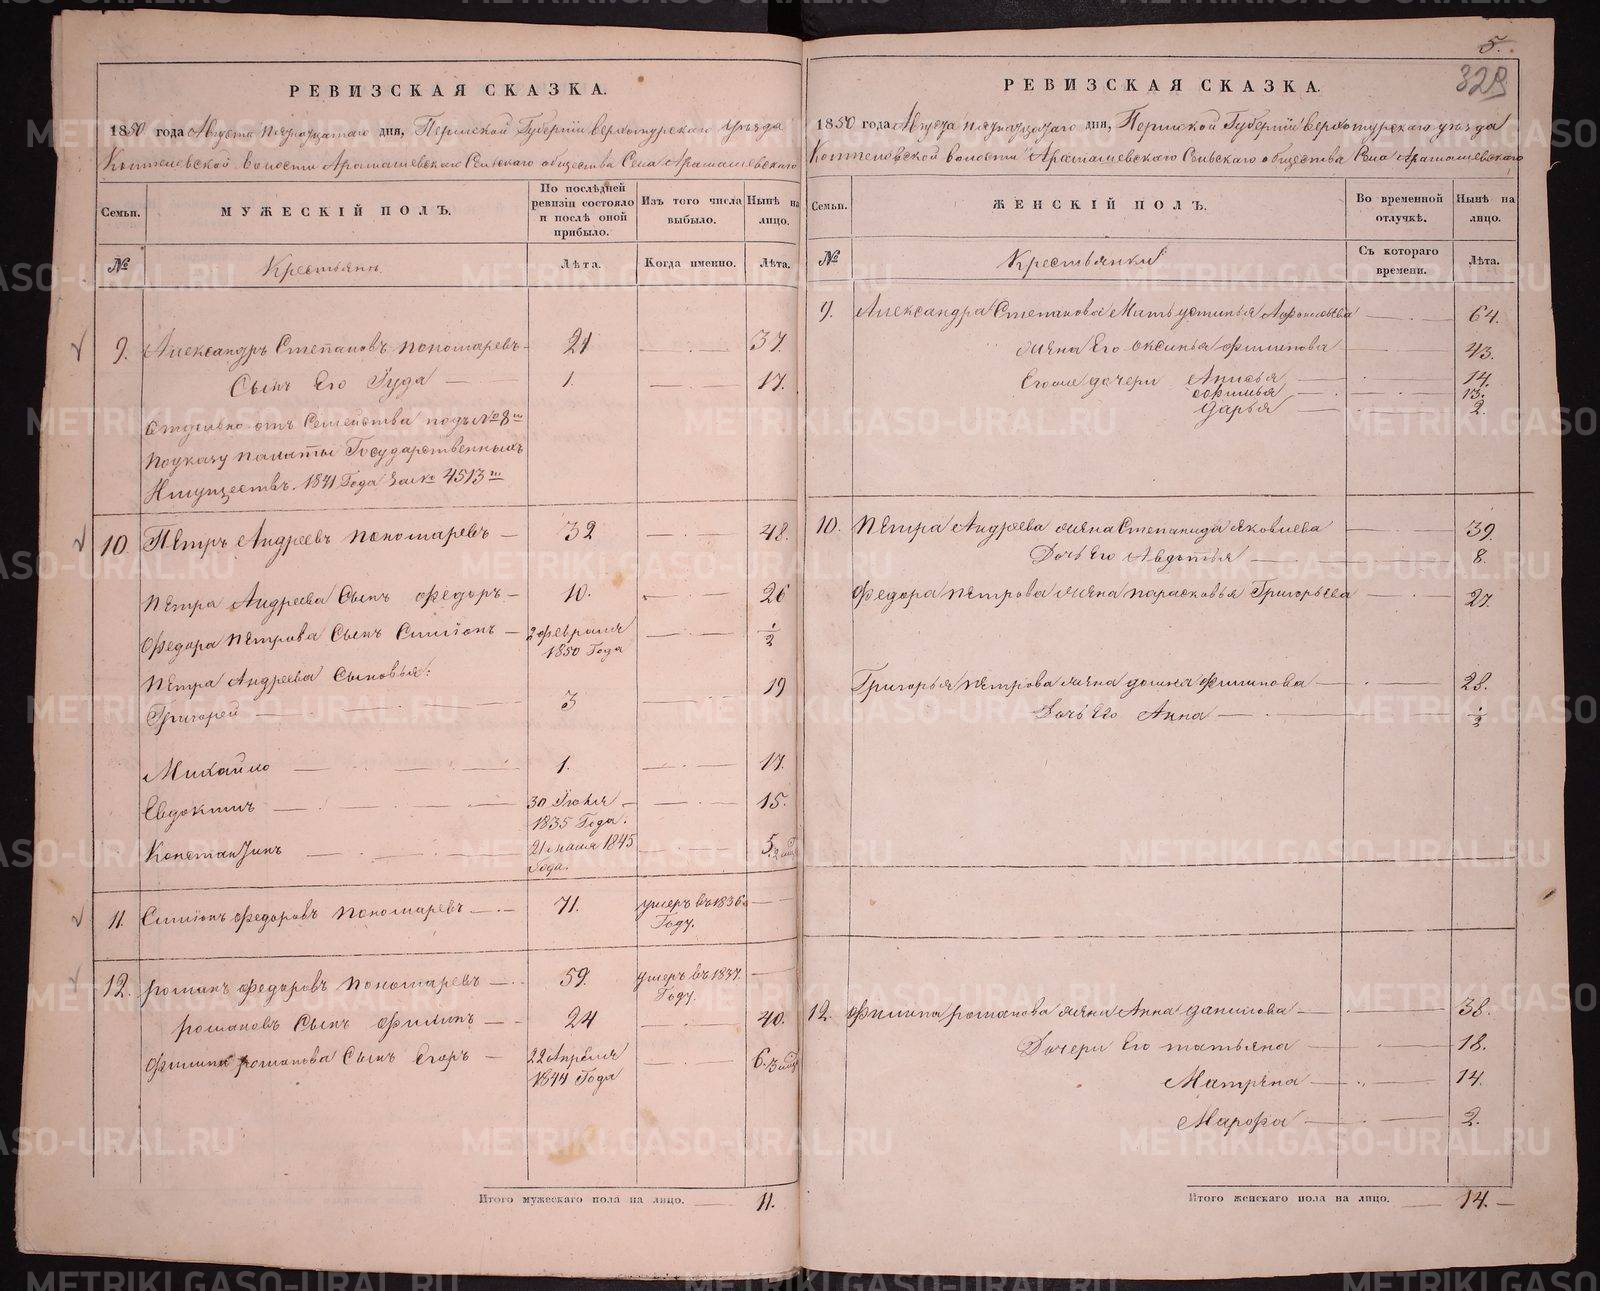 РЕВИЗСКАЯ СКАЗКА.
1850 года Августа пятнадцатаго дня, Пермской Губернiи верхотурскаго уезда
Коптеловской волости Арамашевскаго Сельскаго общества Села Арамашевскаго
Семьи.
МУЖЕСКIЙ ПОЛЪ.
По послѣдней ревизiи состояло и послѣ оной прибыло.
Изъ того числа выбыло.
Нынѣ на лицо.
№
Крестьянъ
Лѣта.
Когда именно.
Лѣта.
9. Александръ Степановъ пономаревъ 21 37.
Сынъ Его Iуда 1. 17.
отделено отъ Семейства подъ № 8м
поуказу палаты Государственныхъ
Имуществъ. 1841 Года за № 4513м
10. Пётръ Андреевъ пономаревъ 32 48.
Пётра Андреева Сынъ Федоръ 10. 26
Федора Пётрова Сынъ Симiонъ 2 февраля 1850 Года 1/2
Пётра Андреева Сыновья:
Григорей 3 19
Михайло 1. 17.
Евдокимъ 30 Iюля 1835 Года. 15.
Константинъ 21 мая 1845 Года. 5. 2 мѣс
11. Симiонъ Федоровъ пономаревъ 71. умеръ въ 1836 Году.
12. романъ Федоровъ пономаревъ 59. умеръ въ 1837. Году.
романовъ Сынъ Филипъ 24 40.
Филипа романова Сынъ Егоръ 22 Апреля 1844 Года 6. 3 мѣс
Итого мужескаго пола на лицо. 11.
5.
329
РЕВИЗСКАЯ СКАЗКА.
1850 года Августа пятнадцатаго дня, Пермской Губернiи верхотурскаго уезда
Коптеловской волости Арамашевскаго Сельскаго общества Села Арамашевскаго
Семьи.
ЖЕНСКIЙ ПОЛЪ.
Во временной отлучкѣ.
Нынѣ на лицо.
№
Крестьянки
Съ котораго времени.
Лѣта.
9. Александра Степанова Мать устинья Афонасьева 64.
жена Его оксинья филипова 43.
Егоже дочери Анисья 14.
софилья 13.
Дарья 2.
10. Пётра Андреева жена Степанида яковлева 39.
Дочь Его Авдотья 8.
Федора Пётрова жена парасковья Григорьева 27.
Григорья Пётрова жена домна Филипова 28.
Дочь Его Анна 1/2
12. Филипа романова жена Анна данилова 38.
Дочери Его татьяна 18.
Матрёна 14.
Марфа 2.
Итого женскаго пола на лицо. 14.
METRIKI.GASO-URAL.RU